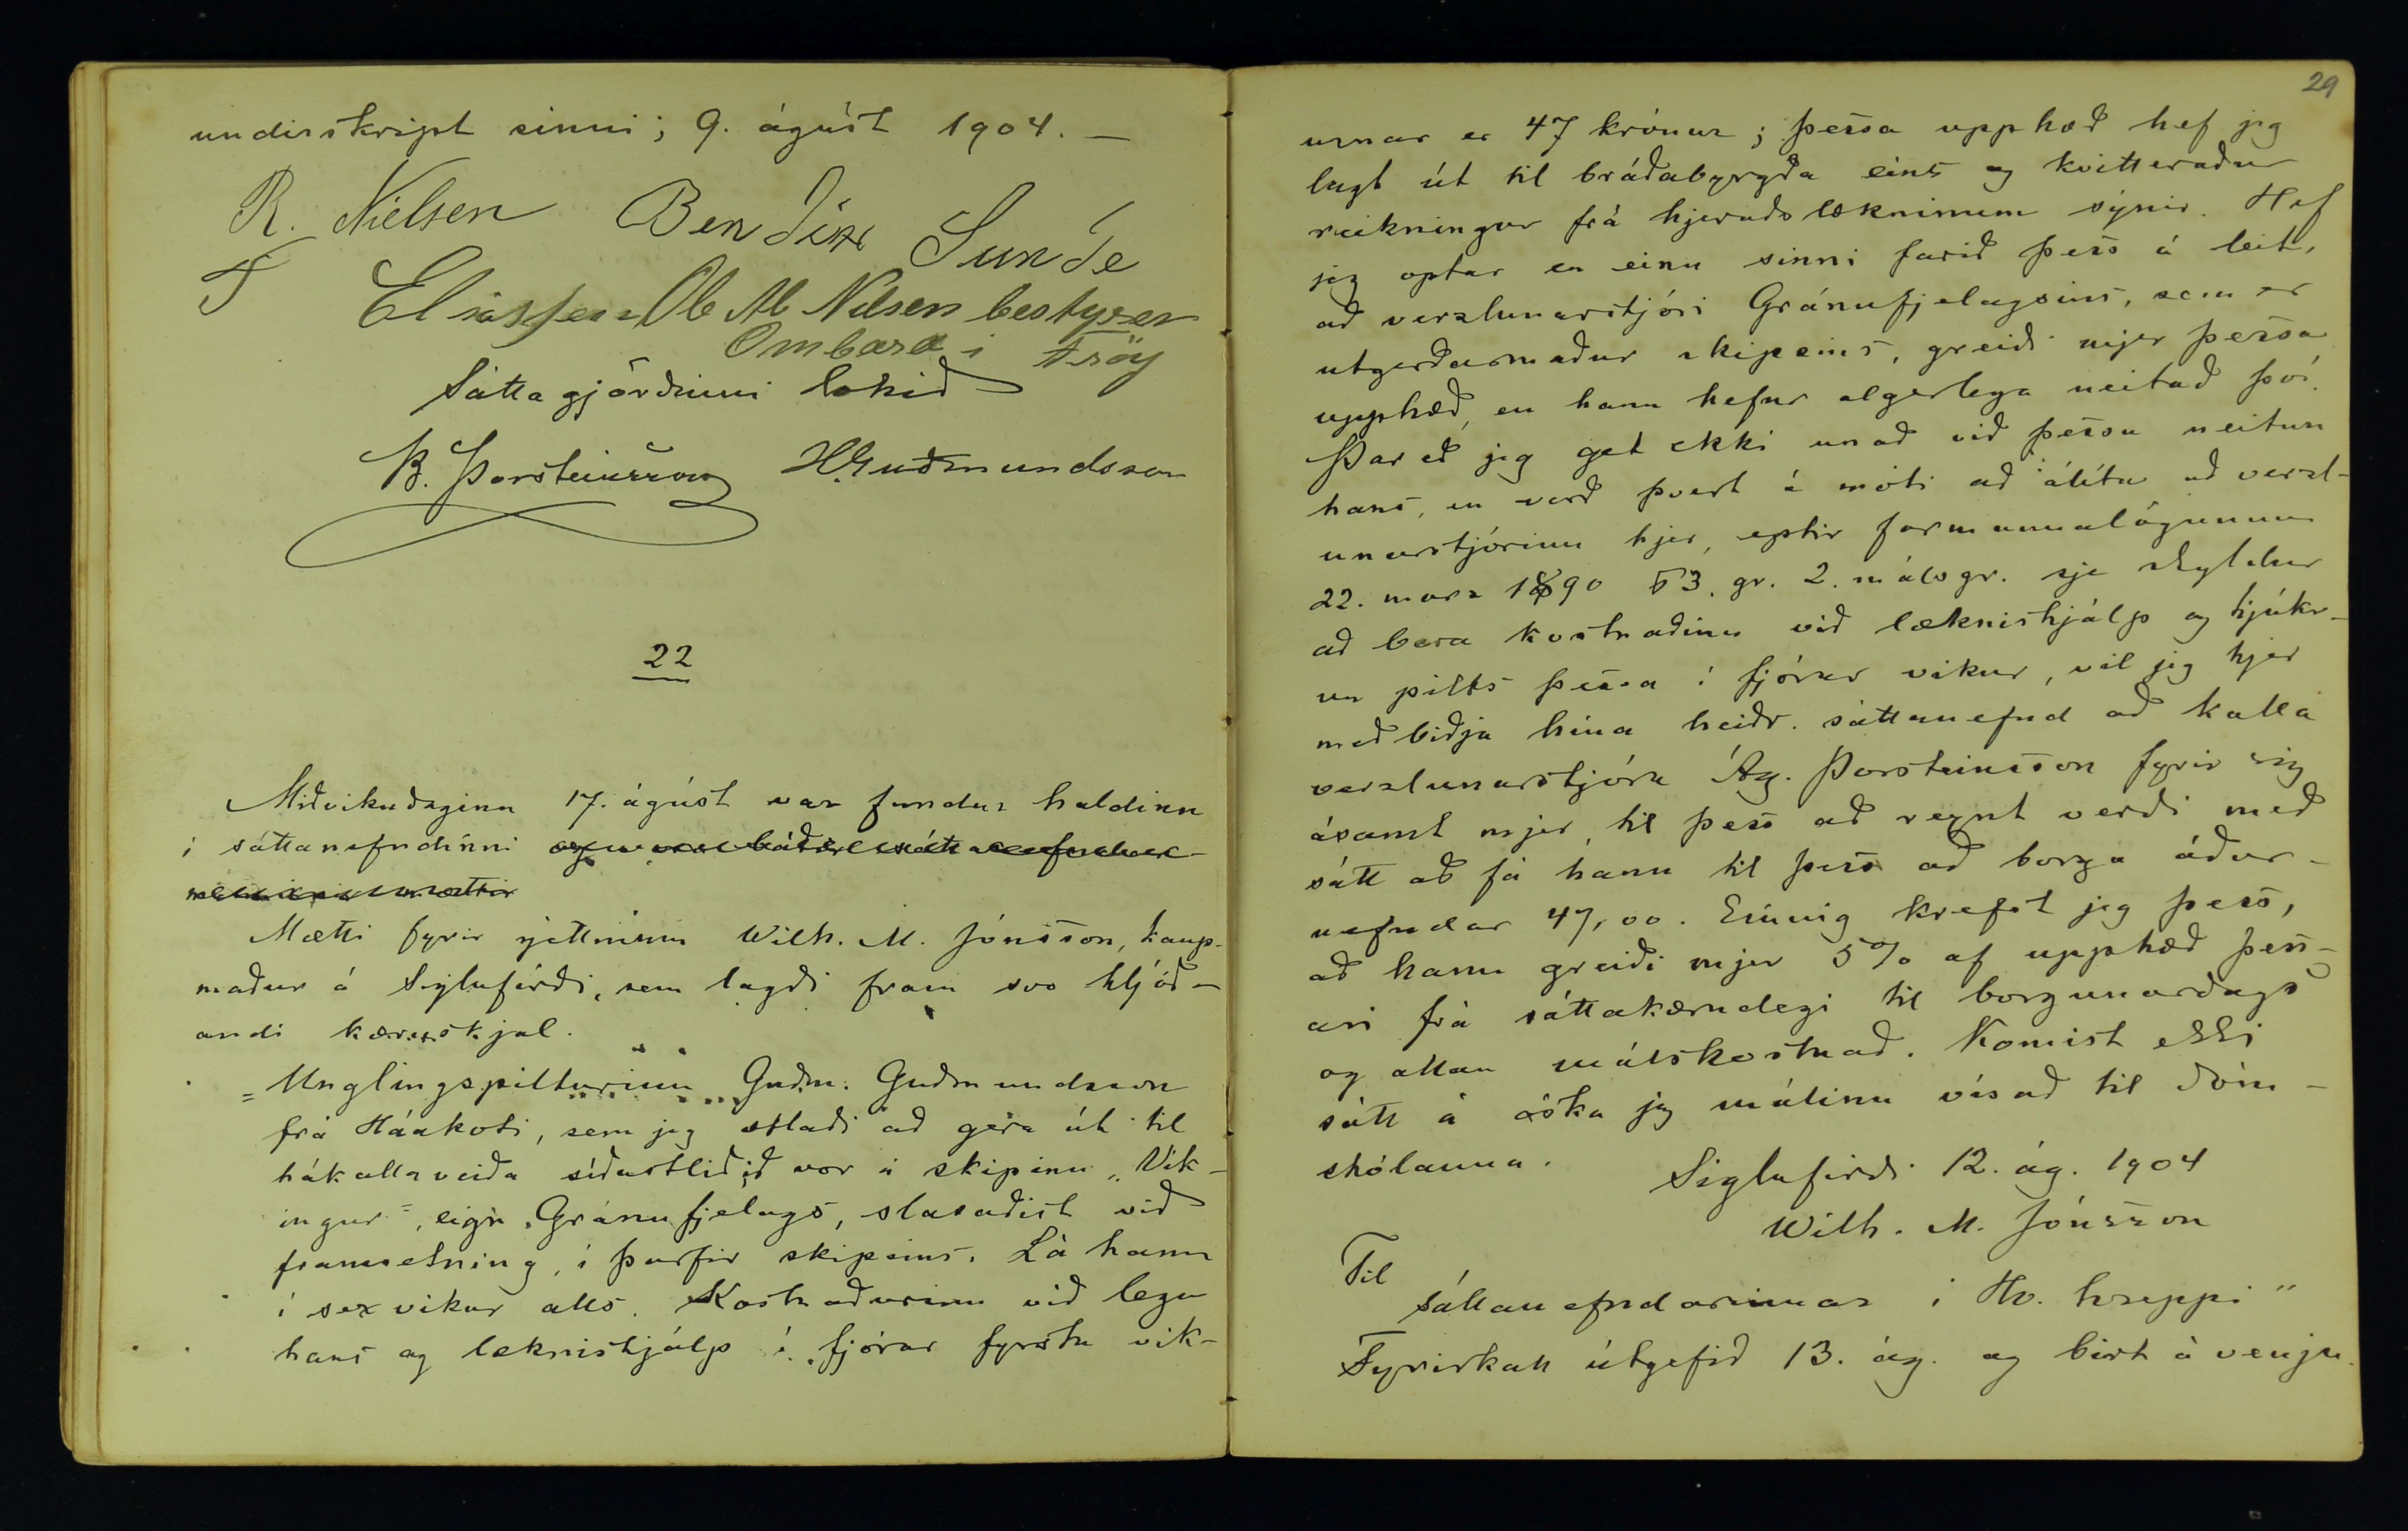 underskript sinni; 9. ágúst 1904. —
R. Nielsen Bendix Sunde
T Eliassen Ole M Nilsen bestyrer
Ombord i Frøy
Sáttagjörðinni lokið
B. Þorsteinsson HGuðmundsson
22
Miðvikudaginn 17. ágúst var fundur haldinn
í sáttanefndinni og voru báðir sáttanefndar-
menn mættir
Mætti fyrir rjettinum Wilh. M. Jónsson, kaup-
maður á Siglufirði, sem lagði fram svo hljóð-
andi kæruskjal.
„Unglingspilturinn Guðm. Guðmundsson
frá Háakoti, sem jeg ætlaði að gera út til
hákallaveiða síðastliðið vor á skipinu „Vík-
ingur", eign Gránufjelags, slasaðist við
framsetning, í þarfir skipsins. Lá hann
í sex vikur alls. Kostnaðurinn við legu
hans og læknishjálp í fjórar fyrstu vik-
29
urnar er 47 krónur; þessa upphæð hef jeg
lagt út til bráðabyrgða eins og kvitteraður
reikningur frá hjeraðslækninum sýnir. Hef
jeg optar en einu sinni farið þess á leit,
að verzlunarstjóri Gránufjelagsins, sem er
utgerðarmaður skipsins, greiði mjer þessa
upphæð, en hann hefur algerlega neitað því.
Þar eð jeg get ekki unað við þessa neitun
hans, en verð þvert á móti að álíta að verzl-
unarstjórinn hjer, eptir farmannalögunum
22. marz 1890 53. gr. 2. málsgr. sje skyldur
að bera kostnaðinn við læknishjálp og hjúkr-
un pilts þessa í fjórar vikur, vil jeg hjer
með biðja hina heiðr. sáttanefnd að kalla
verzlunarstjóra Ág. Þorsteinsson fyrir sig
ásamt mjer, til þess að reynt verði með
sátt að fá hann til þess að borga áður-
nefndar 47,00. Einnig krefst jeg þess,
að hann greiði mjer 5% af upphæð þess-
ari frá sáttakærudegi til borgunardags
og allan málskostnað. Komist ekki
sátt á óska jeg málinu vísað til dóm-
stólanna.
Siglufirði 12. ág. 1904
Wilh. M. Jónsson
Til
sáttanefndarinnar í Hv. hreppi"
Fyrirkall útgefið 13. ág. og birt á venju-